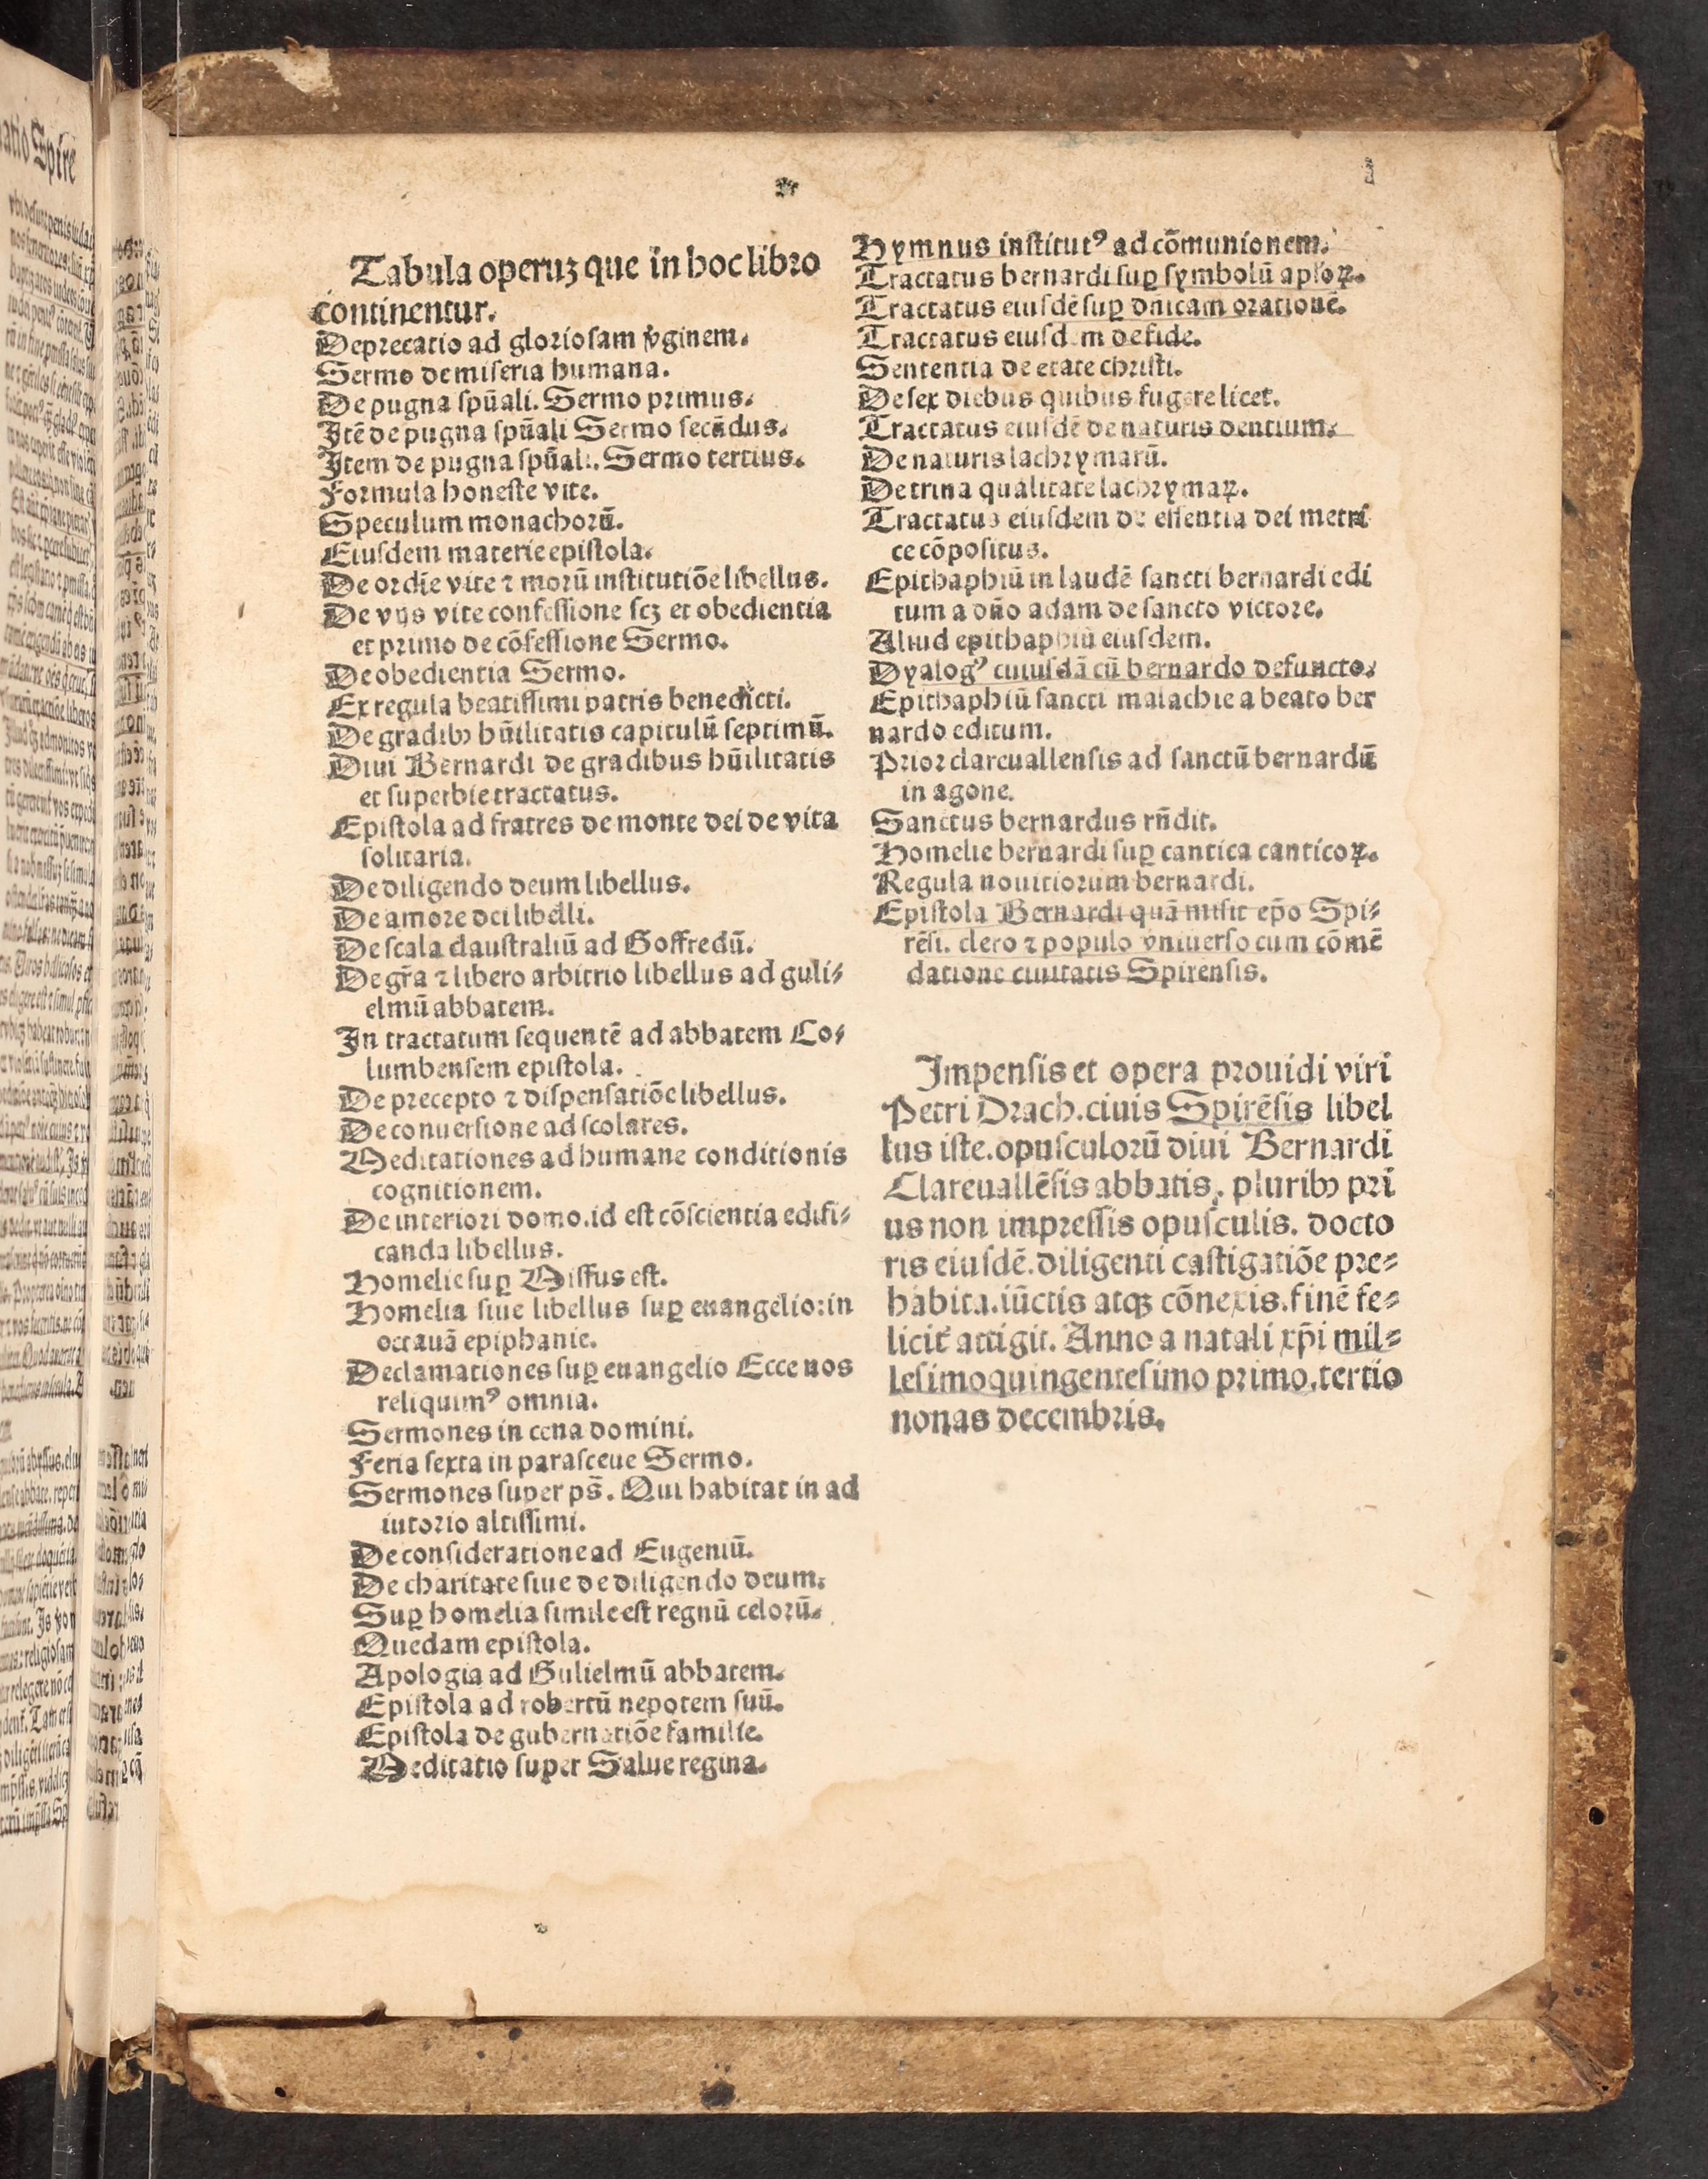 Tabula operuꝫ que in hoc libro
continentur.
Deprecatio ad gloriosam v̓ginem.
Sermo de miseria humana.
De pugna spūali. Sermo primus.
Itē de pugna spūali Sermo secūdus.
Item de pugna spūali. Sermo tertius.
Formula honeste vite.
Speculum monachorū.
Eiusdem materie epistola.
De ordīe vite ⁊ morū institutiōe libellus.
De vijs vite confessione scꝫ et obedientia
et primo de cōfessione Sermo.
De obedientia Sermo.
Ex regula beatissimi patris benedicti.
De gradibꝰ hūilitatis capitulū septimū.
Diui Bernardi de gradibus hūilitatis
et superbie tractatus.
Epistola ad fratres de monte dei de vita
solitaria.
De diligendo deum libellus.
De amore dei libelli.
De scala claustraliū ad Goffredū.
De gr̄a ⁊ libero arbitrio libellus ad guli⸗
elmū abbatem.
In tractatum sequentē ad abbatem Co⸗
lumbensem epistola.
De precepto ⁊ dispensatiōe libellus.
De conuersione ad scolares.
Meditationes ad humane conditionis
cognitionem.
De interiori domo. id est cōscientia edifi⸗
canda libellus.
Homelie suꝑ Missus est.
Homelia siue libellus suꝑ euangelio: in
octauā epiphanie.
Declamationes suꝑ euangelio Ecce nos
reliquimꝰ omnia.
Sermones in cena domini.
Feria sexta in parasceue Sermo.
Sermones super ps̄. Qui habitat in ad
iutorio altissimi.
De consideratione ad Eugeniū.
De charitate siue de diligendo deum.
Suꝑ homelia simile est regnū celorū.
Quedam epistola.
Apologia ad Gulielmū abbatem.
Epistola ad robertū nepotem suū.
Epistola de gubernatiōe familie.
Meditatio super Salue regina.
Hymnus institutꝰ ad cōmunionem.
Tractatus bernardi suꝑ symbolū aploꝝ.
Tractatus eiusdē suꝑ dn̄icam orationē.
Tractatus eiusdem de fide.
Sententia de etate christi.
De sex diebus quibus fugere licet.
Tractatus eiusdē de naturis dentium.
De naturis lachrymarū.
De trina qualitate lachrymaꝝ.
Tractatus eiusdem de essentia dei metri
ce cōpositus.
Epithaphiū in laudē sancti bernardi edi
tum a dn̄o adam de sancto victore.
Aliud epithaphiū eiusdem.
Dyalogꝰ cuiusdā cū bernardo defuncto.
Epithaphiū sancti malachie a beato ber
nardo editum.
Prior clareuallensis ad sanctū bernardū
in agone.
Sanctus bernardus rn̄dit.
Homelie bernardi suꝑ cantica canticoꝝ.
Regula nouitiorum bernardi.
Epistola Bernardi quā misit ep̄o Spi⸗
rēsi. clero ⁊ populo vniuerso cum cōmē
datione ciuitatis Spirensis.
Impensis et opera prouidi viri
Petri Drach. ciuis Spirēsis libel
lus iste. opusculorū diui Bernardi
Clareuallēsis abbatis, pluribꝰ pri
us non impressis opusculis. docto
ris eiusdē. diligenti castigatiōe pre⸗
habita. iūctis atqꝫ cōnexis. finē fe⸗
licit̓ attigit. Anno a natali xp̄i mil⸗
lesimoquingentesimo primo. tertio
nonas decembris.